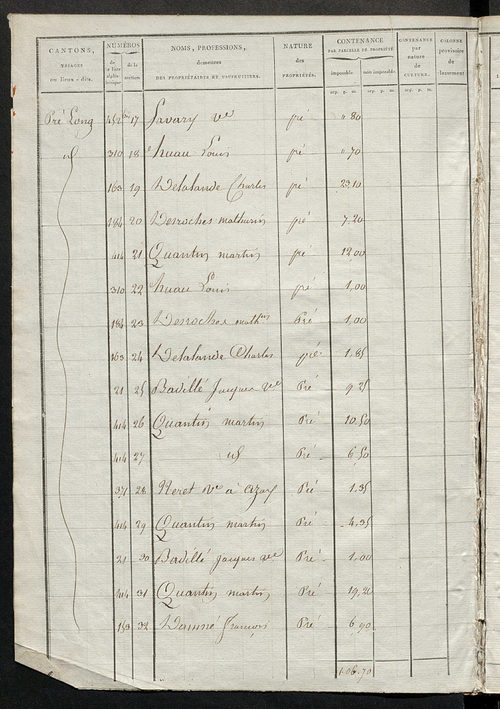 CANTONS,
TRIAGES
ou lieux-dits.
NUMÉROS
de la liste alphabétique.
de la section.
NOMS, PROFESSIONS,
demeures
DES PROPRIÉTAIRES ET USUFRUITIERS.
NATURE
des
PROPRIÉTÉS.
CONTENANCE
PAR PARCELLE DE PROPRIÉTÉ
imposable.
non imposable.
CONTENANCE
par
nature
de
CULTURE.
COLONNE
provisoire
de
classement
arp. p. m. arp. p. m. arp. p. m.
Pré Long 452 bis 17 Savary ve pré " 80
id 310 18 huau Louis pré " 70
163 19 Delalande Charles pré 23,10
184 20 Desroches mathurin pré 7,20
414 21 Quantin martin pré 12,00
310 22 huau Louis pré 1,00
184 23 Desroches math Pré 1,00
163 24 Delalande Charles pré 1,85
21 25 Badillé Jacques ve Pré 9,25
414 26 Quantin martin Pré 10,50
414 27 id Pré 6,50
371 28 Neret Ve à azay Pré 1,35
414 29 Quantin martin Pré 4,35
21 30 Badillé Jacques ve Pré 1,00
414 31 Quantin martin Pré 19,20
153 32 Damné françois Pré 6,90
1,06,70